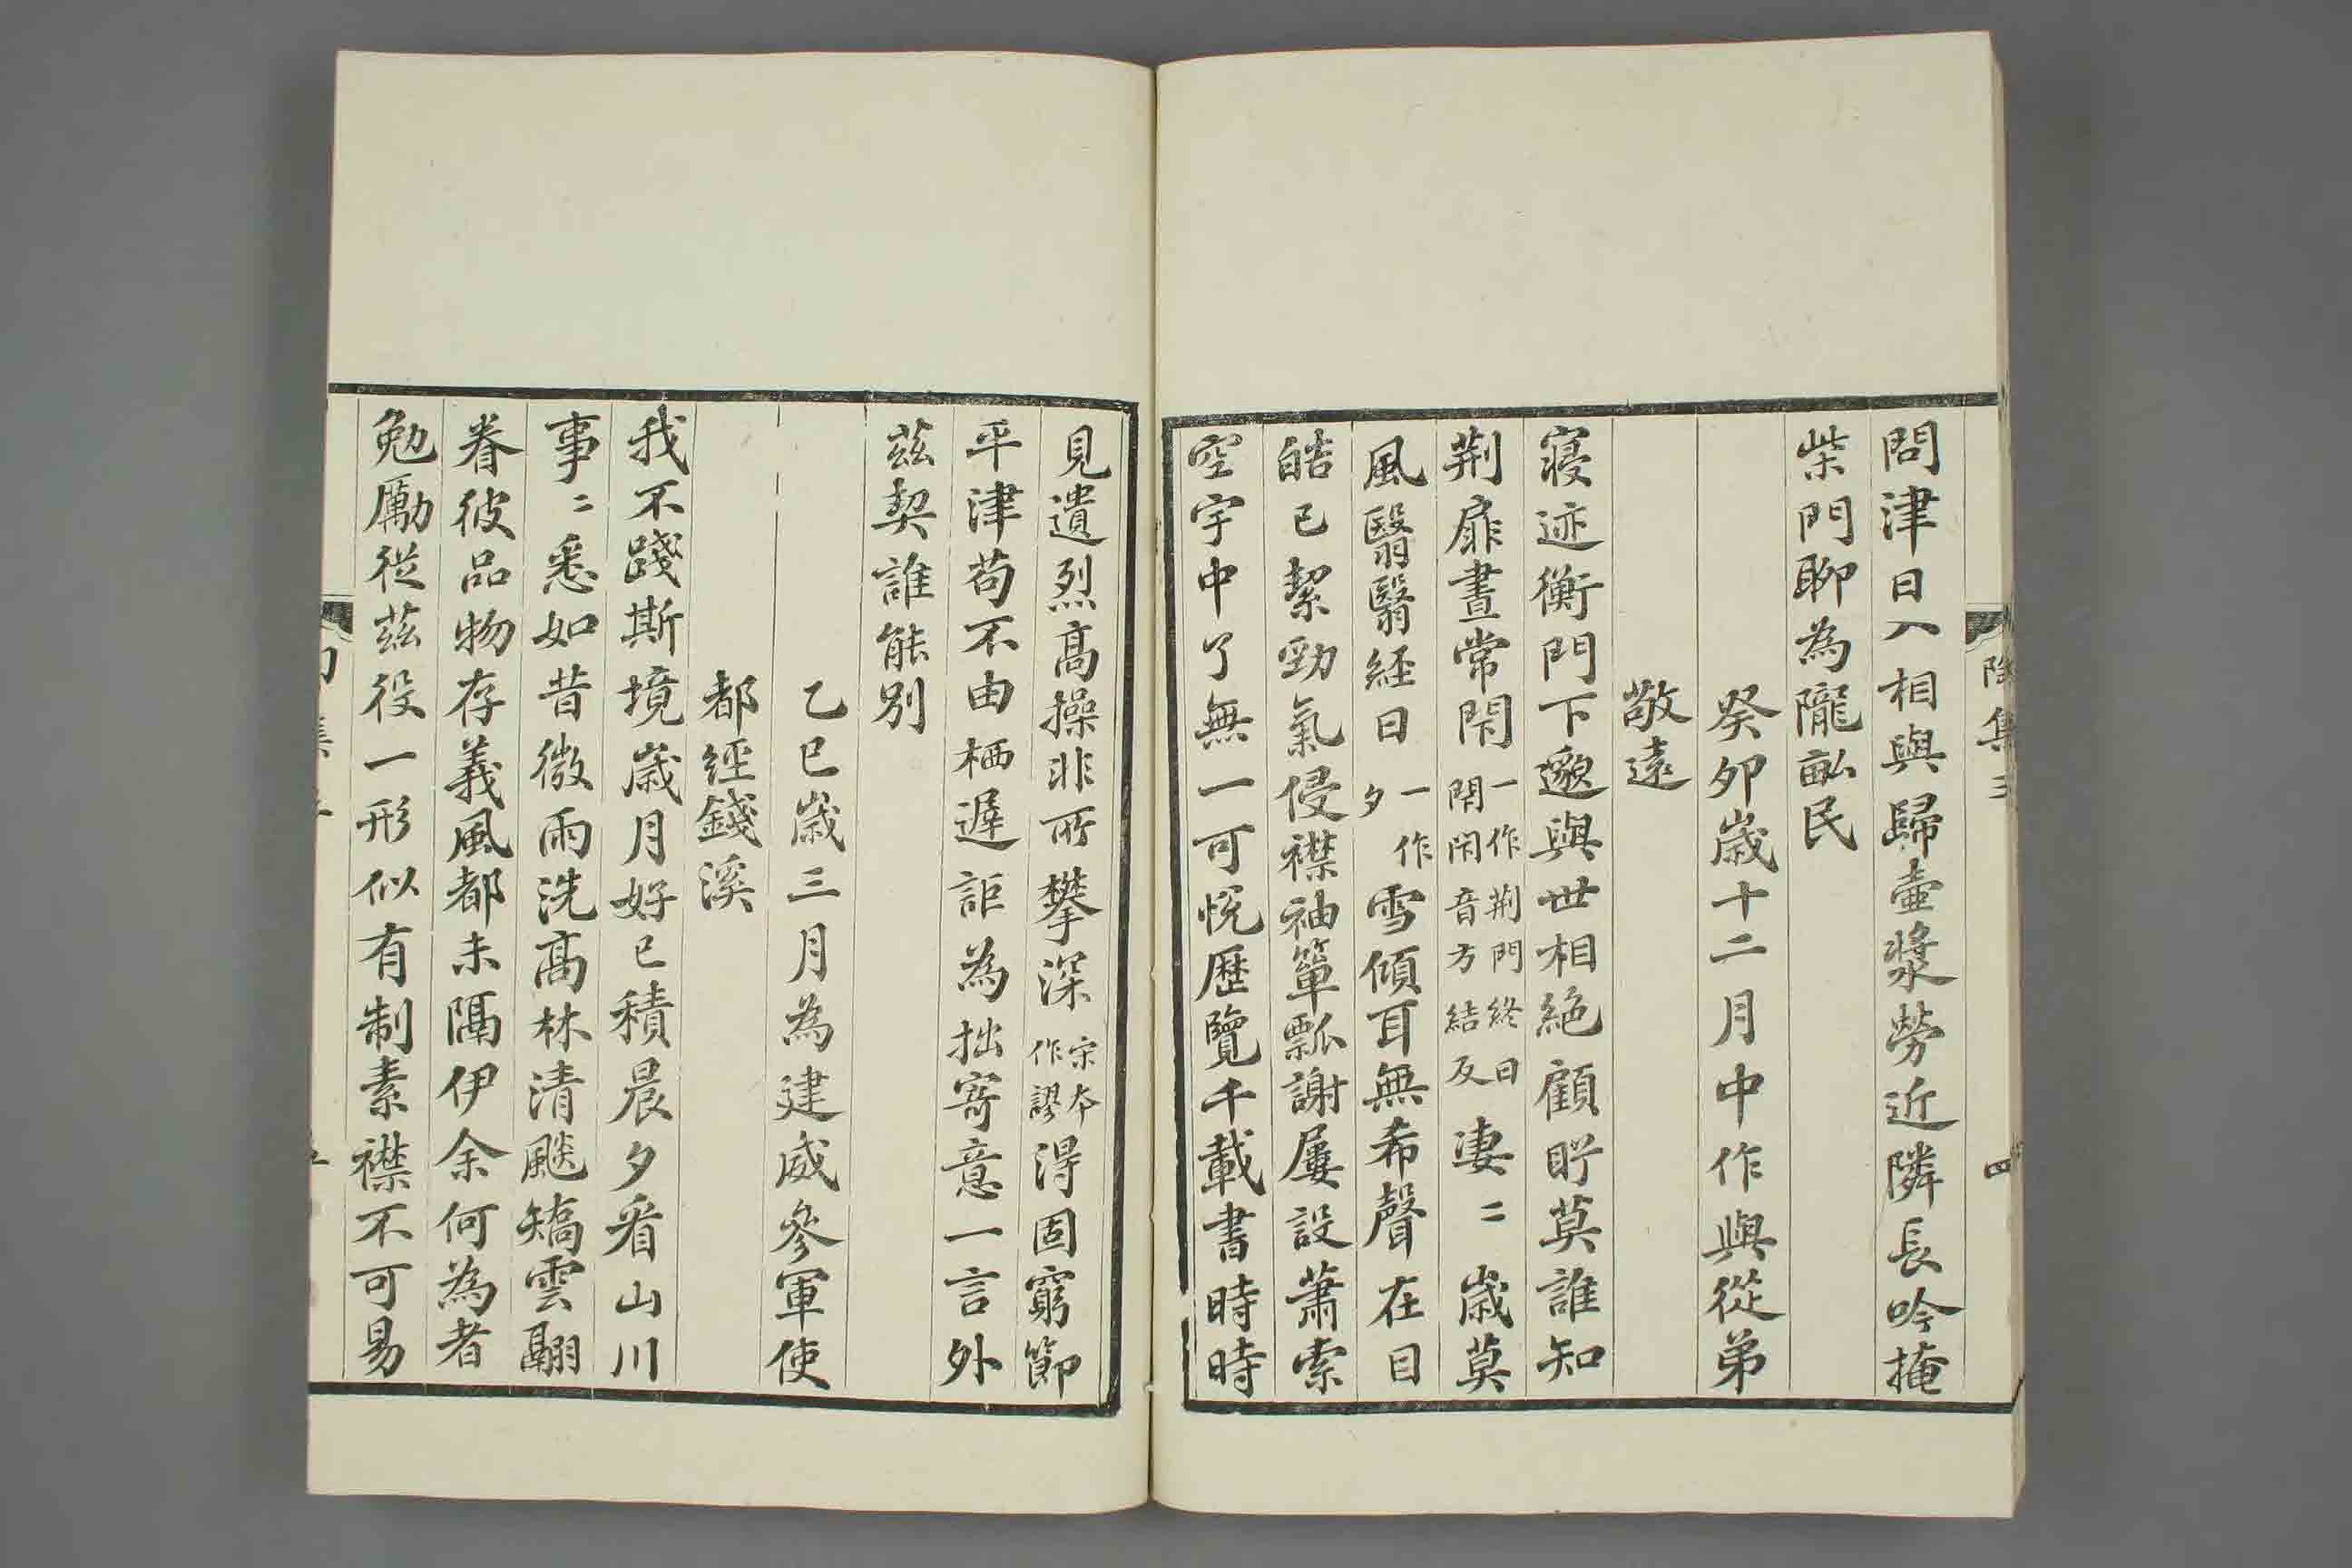 問津日入相與歸壷漿勞近隣長吟掩
柴門聊為隴畝民
癸卯歲十二月中作與從弟
敬遠
寢迹衡門下邈與世相絕顧盻莫誰知
荆扉晝常閇一作荆門終日閇閇音方結反淒〻歲莫
風翳翳経日一作夕雪傾耳無希聲在目
皓已絜勁氣侵襟袖簞瓢謝屢設蕭索
空宇中了無一可悅歷覽千載書時時
見遺烈髙操非所攀深宋本作謬得固窮節
平津苟不由栖遲詎為拙寄意一言外
茲契誰能別
乙巳歲三月為建威參軍使
都經錢溪
我不踐斯境歲月好已積晨夕看山川
事〻悉如昔微雨洗髙林清飈矯雲翮
眷彼品物存義風都未隔伊余何為者
勉勵從茲役一形似有制素襟不可易
陶集三
四